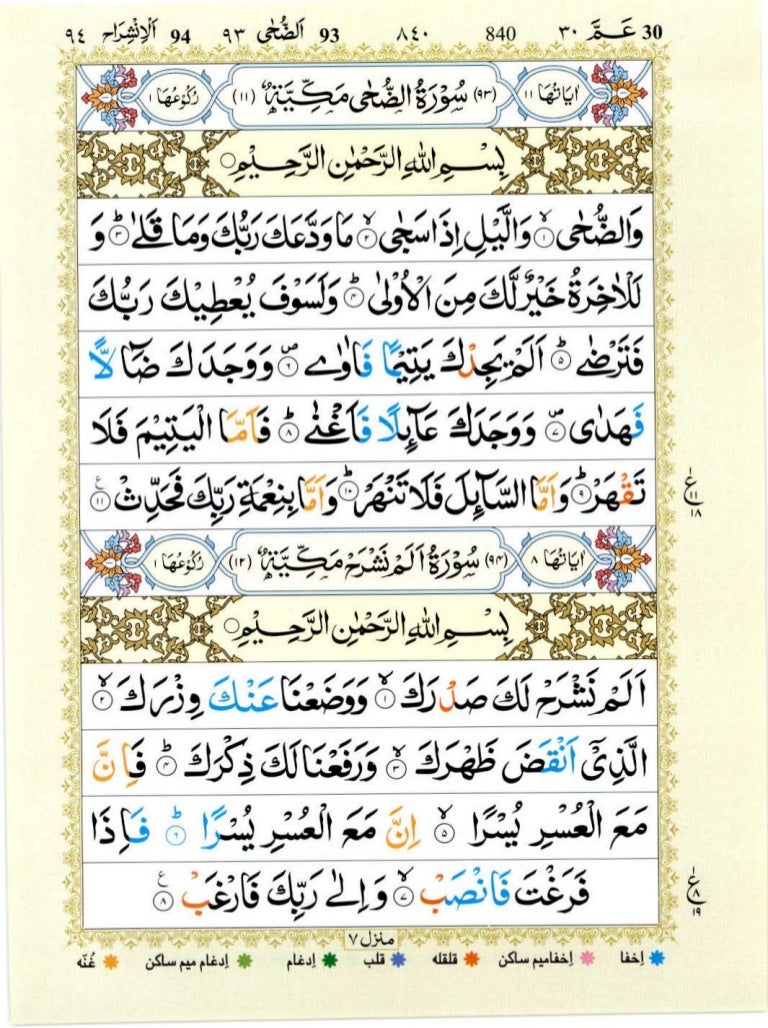 30 عَـمَّ ٣٠ 840 ٨٤٠ 93 اَلضُّحٰى ٩٣ 94 اَلْاِنْشِرَاح ٩٤
اٰيَاتُهَا ١١ (٩٣) سُوْرَةُ الضُّحٰى مَكِّيَّةٌ (١١) رُكُوْعُهَا ١
بِسْمِ اللهِ الرَّحْمٰنِ الرَّحِيْمِ
وَالضُّحٰى ۙ﴿١﴾ وَالَّيْلِ اِذَا سَجٰى ۙ﴿٢﴾ مَا وَدَّعَكَ رَبُّكَ وَمَا قَلٰى ؕ﴿٣﴾ وَ
لَلْاٰخِرَةُ خَيْرٌ لَّكَ مِنَ الْاُوْلٰى ؕ﴿٤﴾ وَلَسَوْفَ يُعْطِيْكَ رَبُّكَ
فَتَرْضٰى ؕ﴿٥﴾ اَلَمْ يَجِدْكَ يَتِيْمًا فَاٰوٰى ۪﴿٦﴾ وَوَجَدَكَ ضَآلًّا
فَهَدٰى ۪﴿٧﴾ وَوَجَدَكَ عَآئِلًا فَاَغْنٰى ؕ﴿٨﴾ فَاَمَّا الْيَتِيْمَ فَلَا
تَقْهَرْ ؕ﴿٩﴾ وَاَمَّا السَّآئِلَ فَلَا تَنْهَرْ ؕ﴿١٠﴾ وَاَمَّا بِنِعْمَةِ رَبِّكَ فَحَدِّثْ ﴿١١﴾
ع ١١ ١٨
اٰيَاتُهَا ٨ (٩٤) سُوْرَةُ اَلَمْ نَشْرَحْ مَكِّيَّةٌ (١٢) رُكُوْعُهَا ١
بِسْمِ اللهِ الرَّحْمٰنِ الرَّحِيْمِ
اَلَمْ نَشْرَحْ لَكَ صَدْرَكَ ۙ﴿١﴾ وَوَضَعْنَا عَنْكَ وِزْرَكَ ۙ﴿٢﴾
الَّذِيْۤ اَنْقَضَ ظَهْرَكَ ۙ﴿٣﴾ وَرَفَعْنَا لَكَ ذِكْرَكَ ؕ﴿٤﴾ فَاِنَّ
مَعَ الْعُسْرِ يُسْرًا ۙ﴿٥﴾ اِنَّ مَعَ الْعُسْرِ يُسْرًا ؕ﴿٦﴾ فَاِذَا
فَرَغْتَ فَانْصَبْ ۙ﴿٧﴾ وَاِلٰى رَبِّكَ فَارْغَبْ ﴿٨﴾
ع ٨ ١٩
منزل ٧
اِخفا اِخفامیم ساکن قلقله قلب اِدغام اِدغام میم ساکن غُنّه